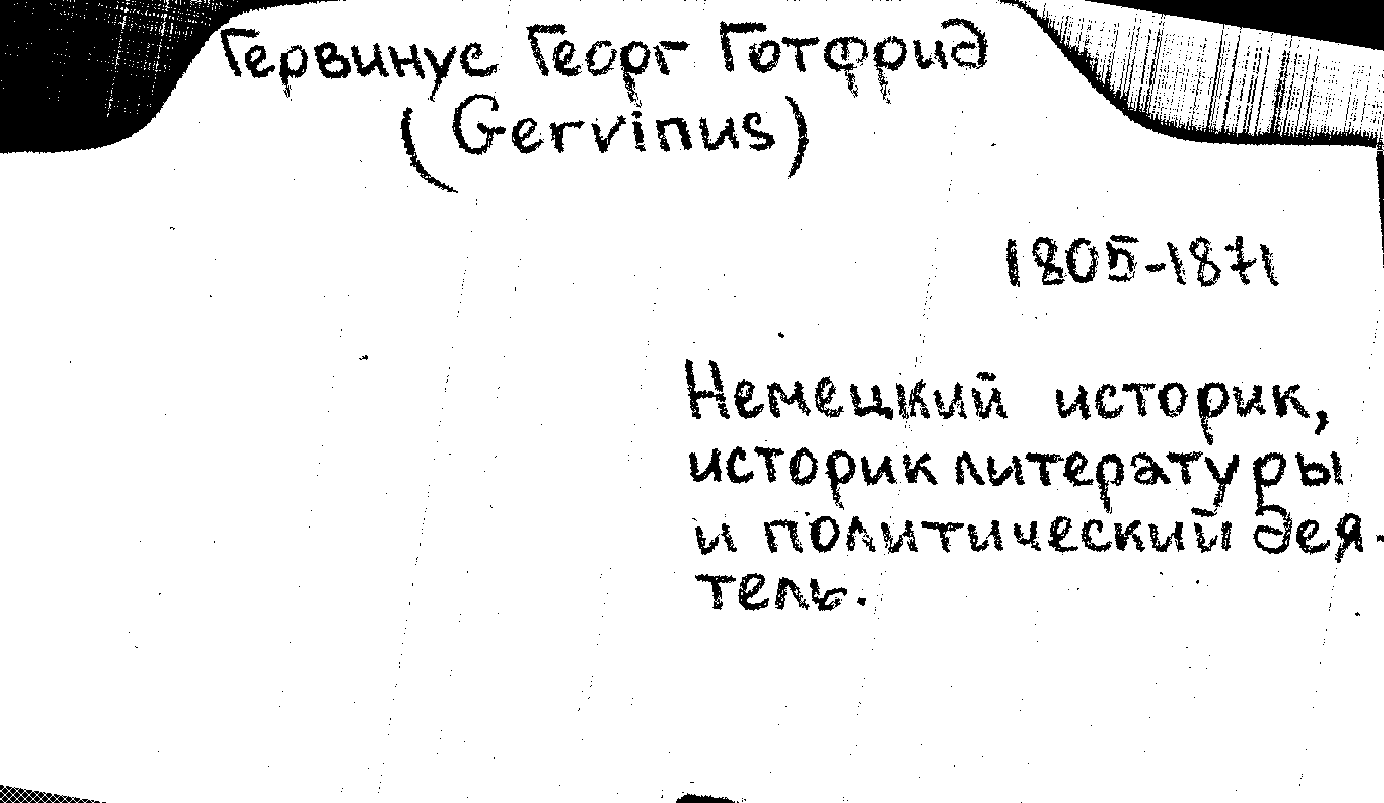 Гервинус Георг Готфрид
(Gervinus)
1805-1871
Немецкий историк,
историк литературы
и политический дея-
тель.